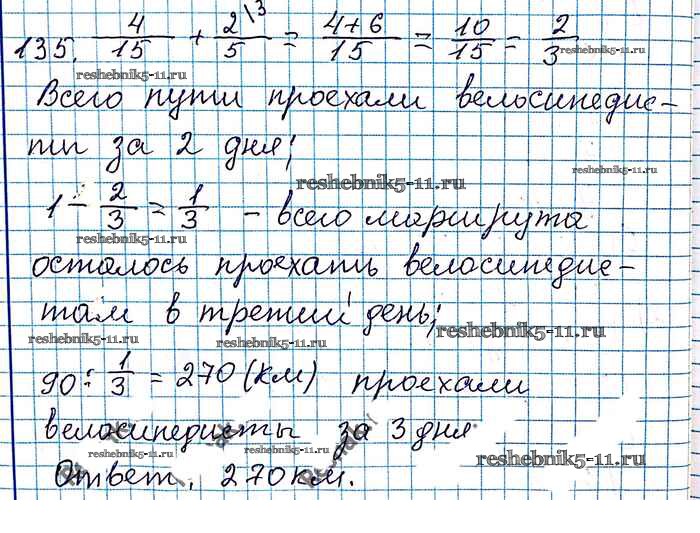 135. 4/15 + 2\3/5 = 4+6/15 = 10/15 = 2/3
reshebnik5-11.ru
reshebnik5-11.ru
Всего пути проехали велосипедис-
ты за 2 дня;
reshebnik5-11.ru
reshebnik5-11.ru
1 - 2/3 = 1/3 - всего маршрута
reshebnik5-11.ru
осталось проехать велосипедис-
там в третий день;
reshebnik5-11.ru
reshebnik5-11.ru
90 : 1/3 = 270 (км) проехали
велосипедисты за 3 дня
reshebnik5-11.ru
reshebnik5-11.ru
Ответ. 270 км.